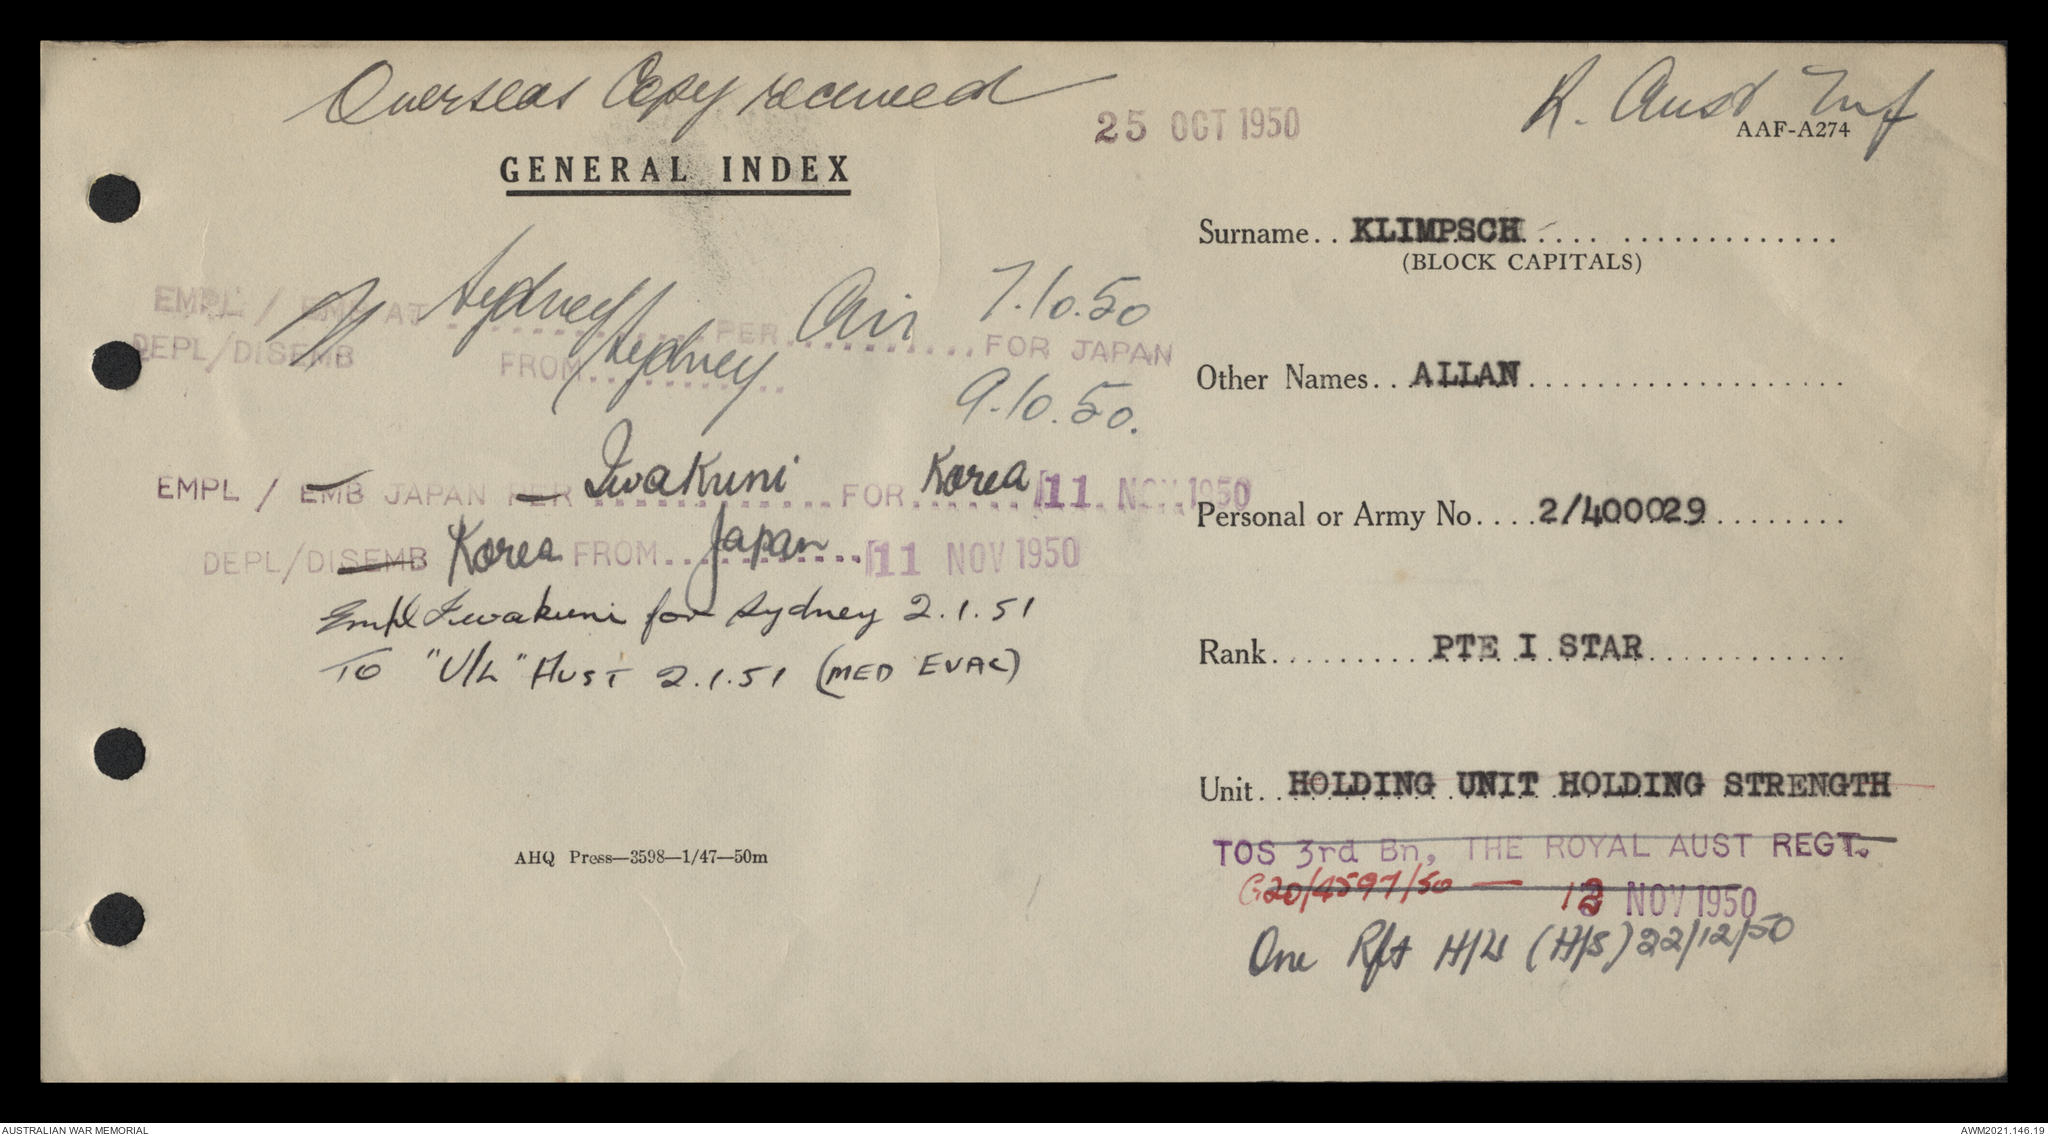 Overseas Copy received 25 OCT 1950
GENERAL INDEX
EMPL / EMB AT Sydney PER Air FOR JAPAN 7.10.50
DEPL/DISEMB FROM Sydney 9.10.50.
EMPL / EMB JAPAN PER Iwakuni FOR Korea 11 NOV 1950
DEPL/DISEMB Korea FROM Japan 11 NOV 1950
Empl Iwakuni for Sydney 2.1.51
To "U/L" AUST 2.1.51 (MED EVAC)
AHQ Press—3598—1/47—50m
R. Aust Inf
AAF-A274
Surname KLIMPSCH
(BLOCK CAPITALS)
Other Names ALLAN
Personal or Army No. 2/400029
Rank PTE I STAR
Unit HOLDING UNIT HOLDING STRENGTH
TOS 3rd Bn, THE ROYAL AUST REGT.
G20/4597/50 — 12 NOV 1950
One Rft H/U (H/S) 22/12/50
AUSTRALIAN WAR MEMORIAL
AWM2021.146.19